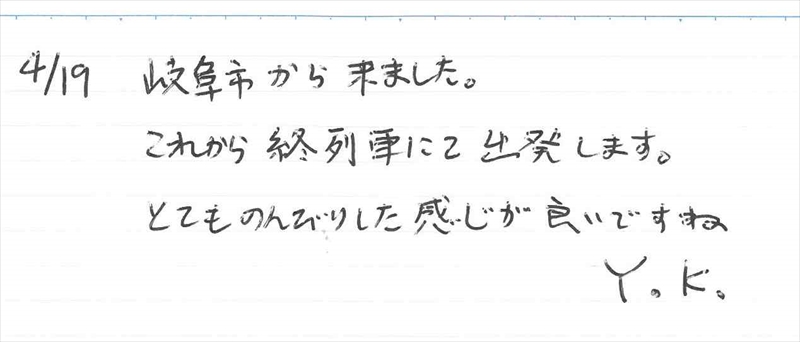 4/19 岐阜市から来ました。
これから終列車にて出発します。
とてものんびりした感じが良いですね
Y。K。